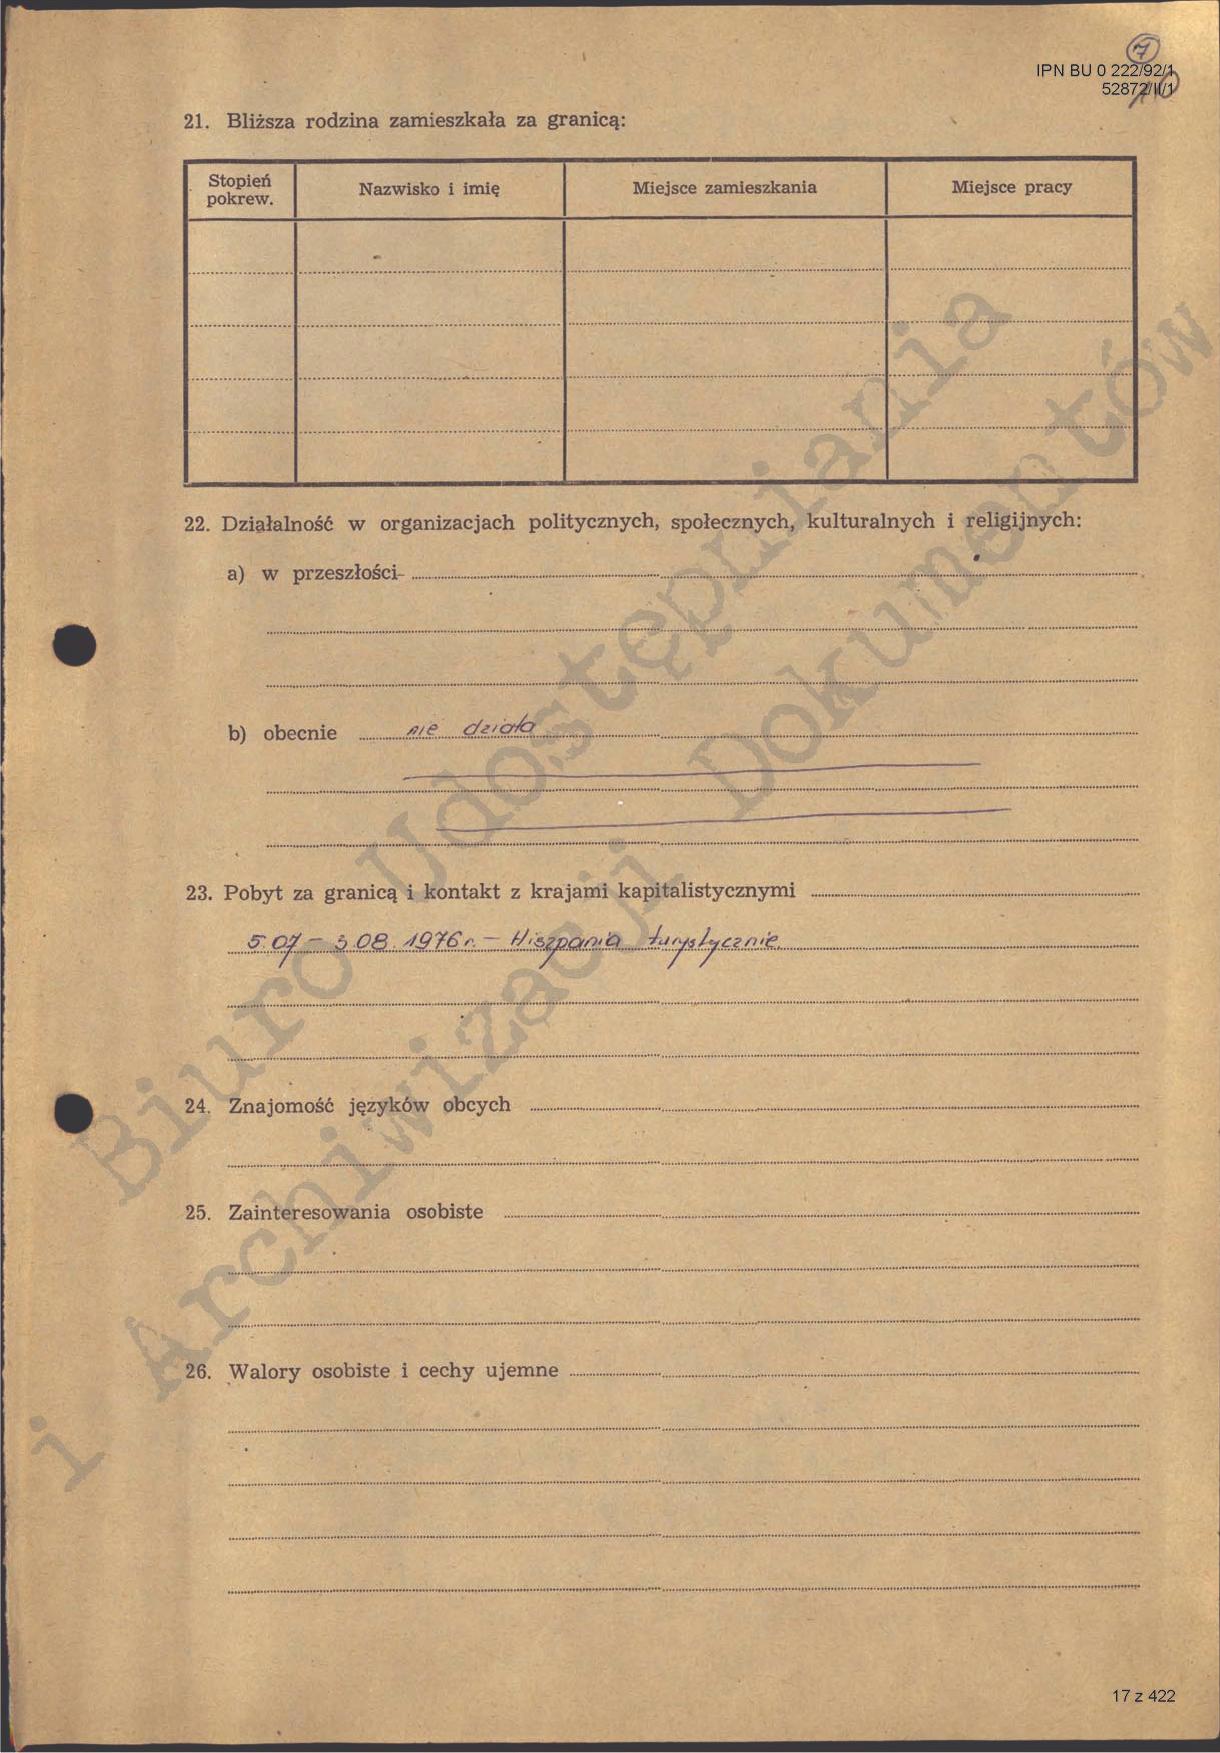 7
IPN BU 0 222/92/1
52872/II/1
10
21. Bliższa rodzina zamieszkała za granicą:
Stopień pokrew. Nazwisko i imię Miejsce zamieszkania Miejsce pracy
22. Działalność w organizacjach politycznych, społecznych, kulturalnych i religijnych:
a) w przeszłości-
b) obecnie nie działa
23. Pobyt za granicą i kontakt z krajami kapitalistycznymi
5.07 – 3.08.1976 r. – Hiszpania turystycznie.
24. Znajomość języków obcych
25. Zainteresowania osobiste
26. Walory osobiste i cechy ujemne
Biuro Udostępniania
i Archiwizacji Dokumentów
17 z 422